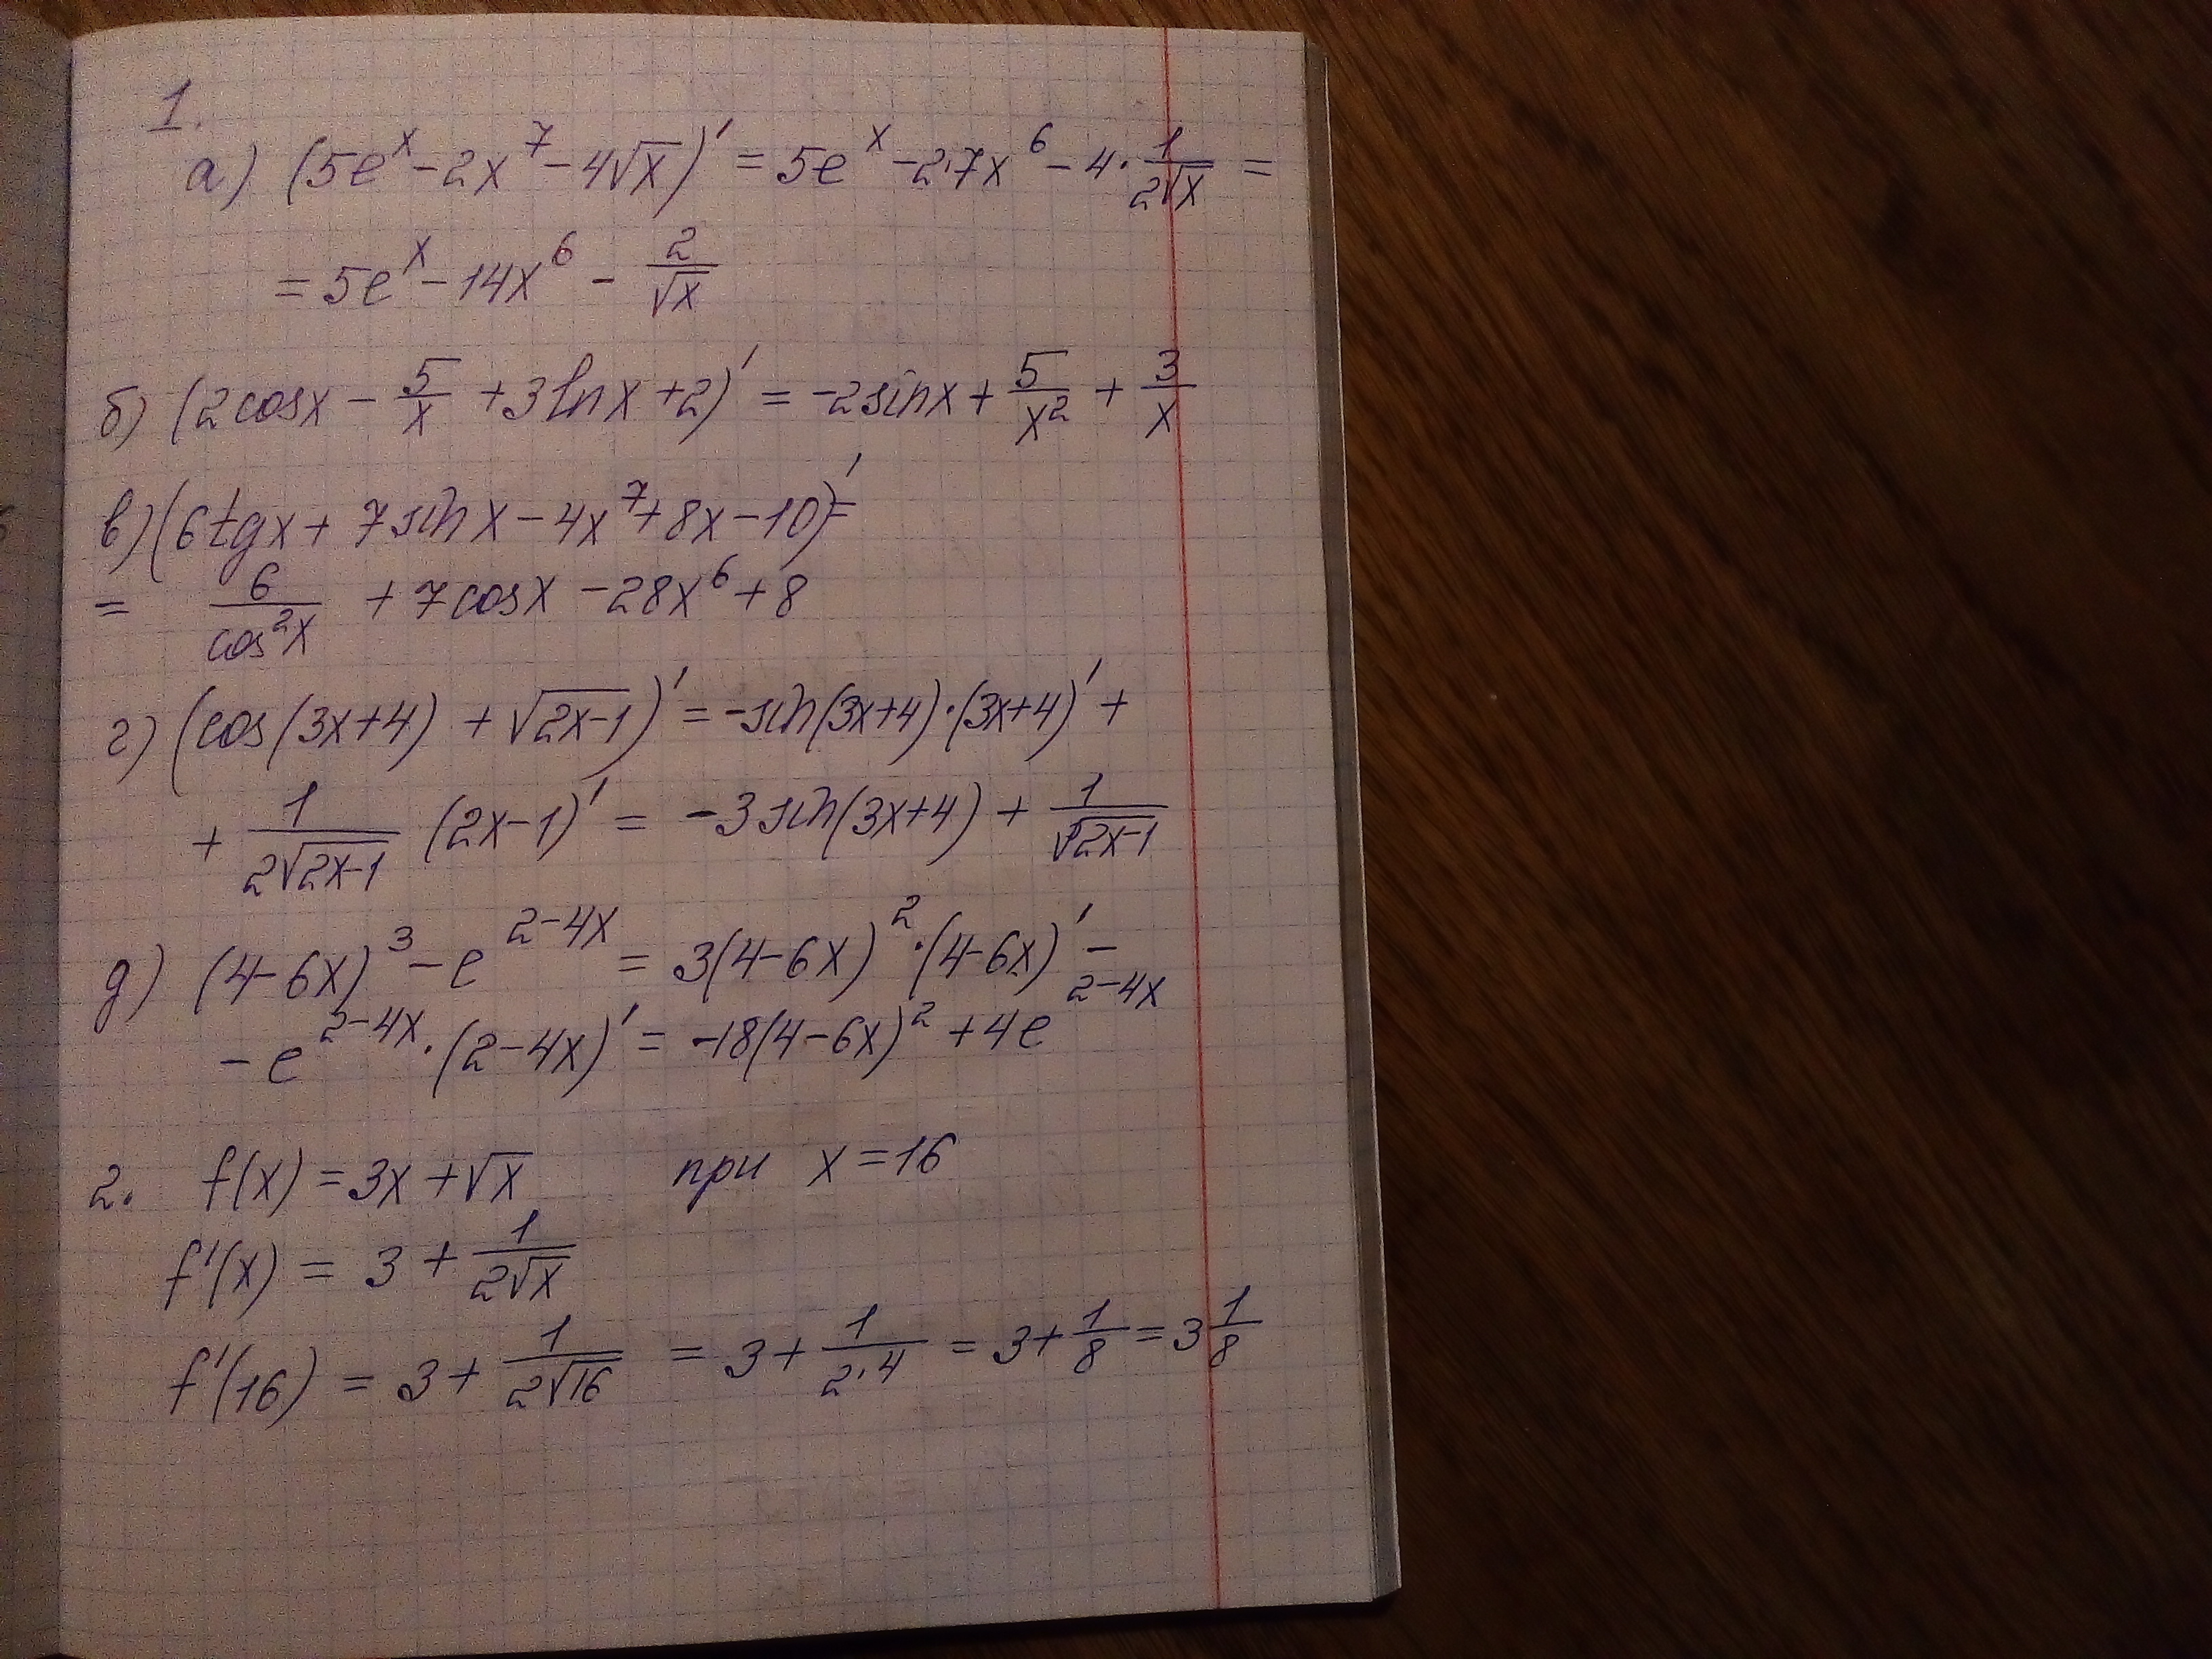 1.
а) (5eˣ − 2x⁷ − 4√x)' = 5eˣ − 2·7x⁶ − 4·1/(2√x) =
= 5eˣ − 14x⁶ − 2/√x
б) (2cosx − 5/x + 3lnx + 2)' = −2sinx + 5/x² + 3/x
в) (6tgx + 7sinx − 4x⁷ + 8x − 10)' =
= 6/cos²x + 7cosx − 28x⁶ + 8
г) (cos(3x+4) + √(2x−1))' = −sin(3x+4)·(3x+4)' +
+ 1/(2√(2x−1)) (2x−1)' = −3sin(3x+4) + 1/√(2x−1)
д) (4−6x)³ − e^(2−4x) = 3(4−6x)²·(4−6x)' −
− e^(2−4x)·(2−4x)' = −18(4−6x)² + 4e^(2−4x)
2. f(x) = 3x + √x при x = 16
f'(x) = 3 + 1/(2√x)
f'(16) = 3 + 1/(2√16) = 3 + 1/(2·4) = 3 + 1/8 = 3 1/8